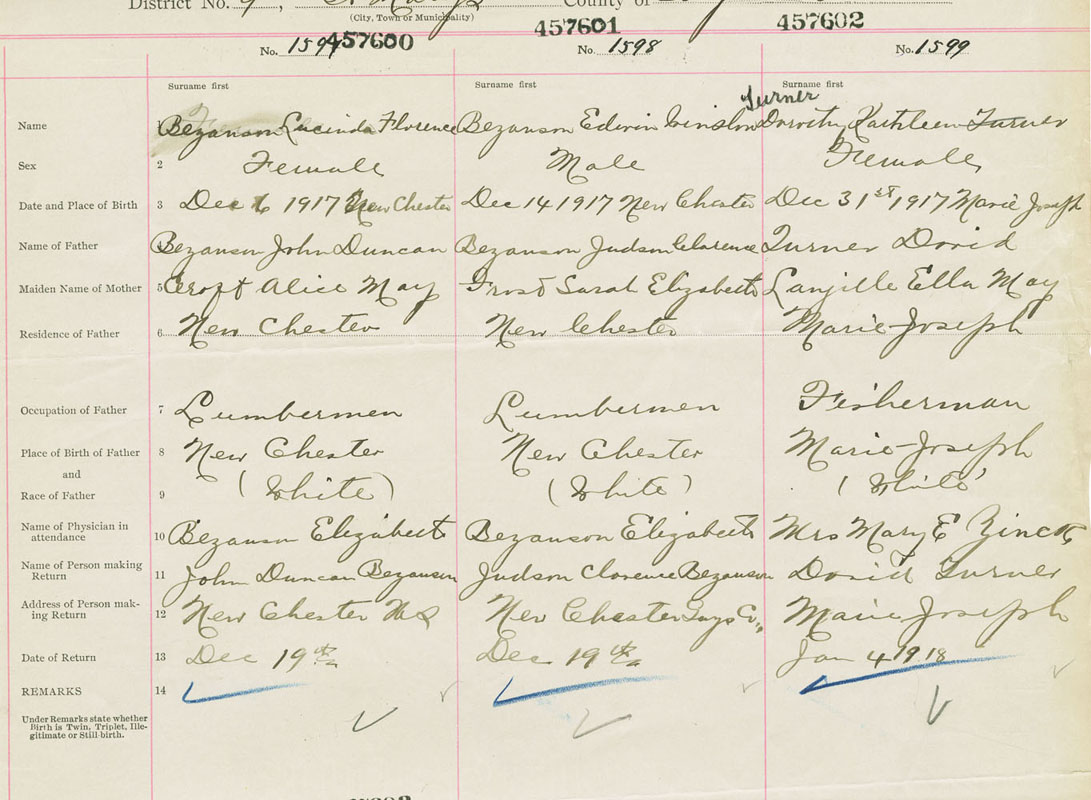 District No. 9, St Marys County of
(City, Town or Municipality)
457600 457601 457602
No. 1597 No. 1598 No. 1599
Surname first Surname first Surname first
Turner
Name 1 Bezanson Lucinda Florence Bezanson Edwin Winslow Dorothy Kathleen Turner
Sex 2 Female Male Female
Date and Place of Birth 3 Dec 6 1917 New Chester Dec 14 1917 New Chester Dec 31st 1917 Marie Joseph
Name of Father Bezanson John Duncan Bezanson Judson Clarence Turner David
Maiden Name of Mother 5 Croft Alice May Frost Sarah Elizabeth Langille Ella May
Residence of Father 6 New Chester New Chester Marie Joseph
Occupation of Father 7 Lumbermen Lumbermen Fisherman
Place of Birth of Father 8 New Chester New Chester Marie-Joseph
and
Race of Father 9 (White) (White) (White)
Name of Physician in
attendance 10 Bezanson Elizabeth Bezanson Elizabeth Mrs Mary E Zinck
Name of Person making
Return 11 John Duncan Bezanson Judson Clarence Bezanson David Turner
Address of Person mak-
ing Return 12 New Chester NS New Chester Guys Co., Marie Joseph
Date of Return 13 Dec 19th Dec 19th Jan 4 1918
REMARKS 14
Under Remarks state whether
Birth is Twin, Triplet, Ille-
gitimate or Still-birth.